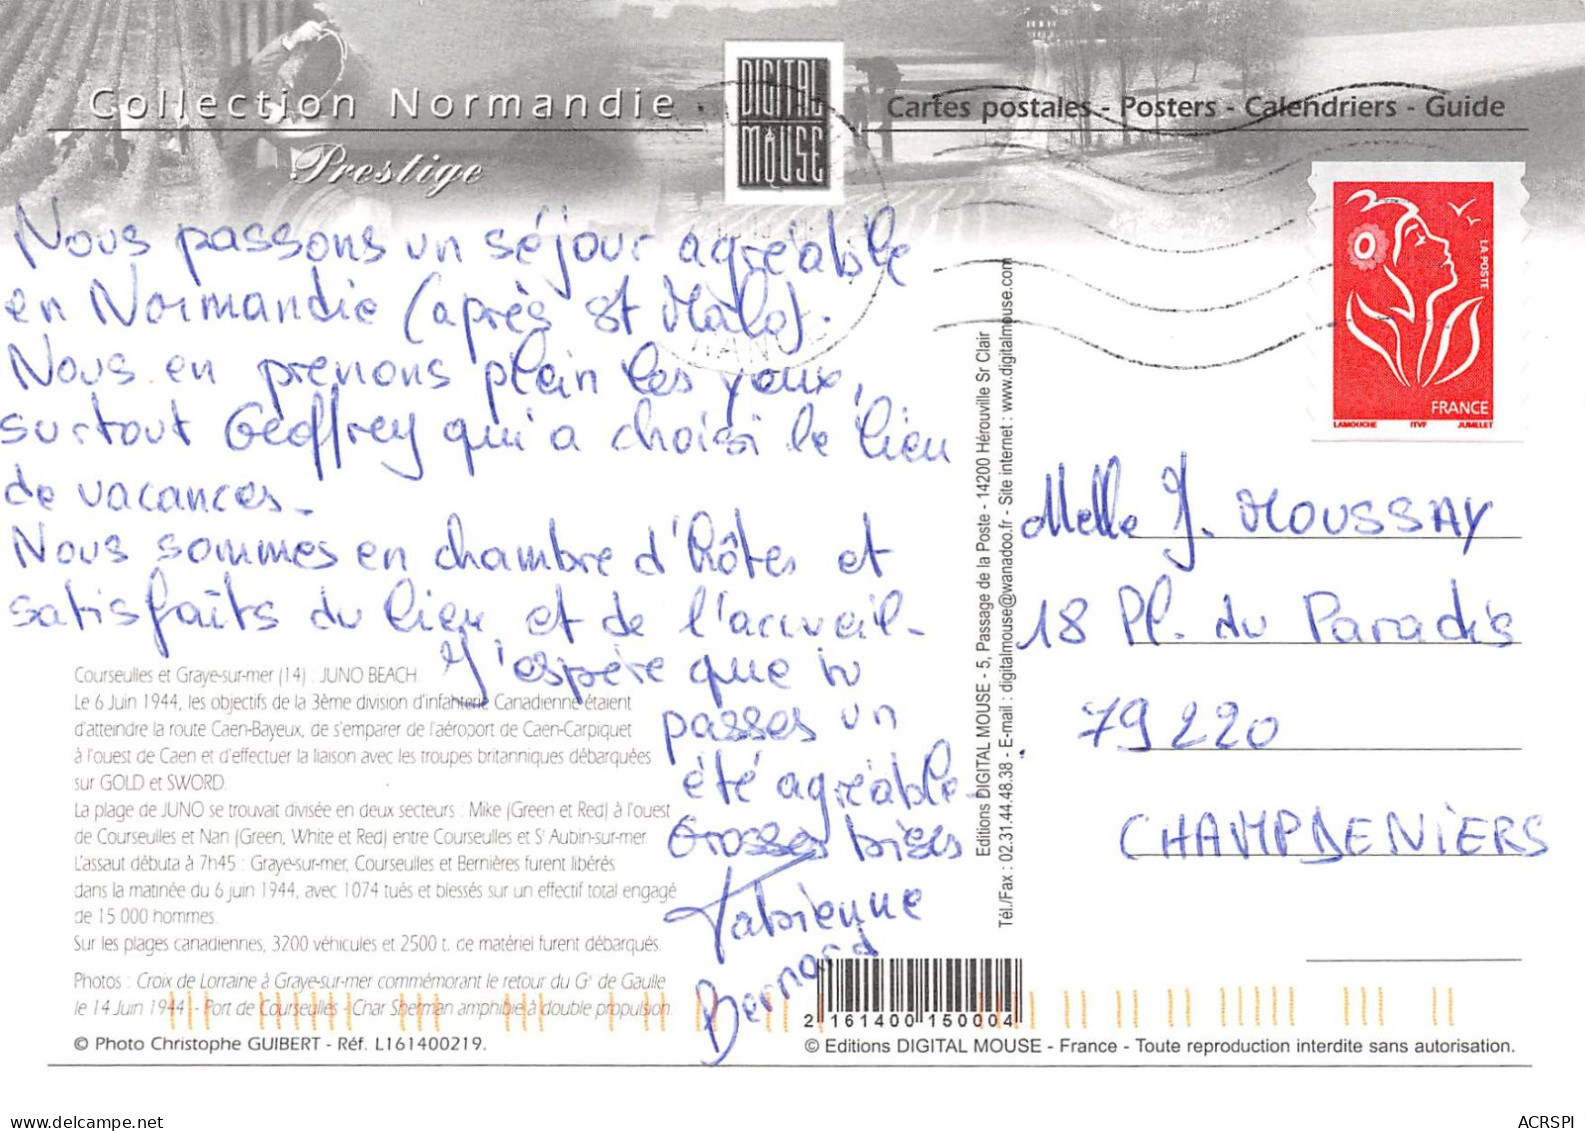 Collection Normandie
Prestige
DIGITAL
MOUSE
Cartes postales - Posters - Calendriers - Guide
LA POSTE
FRANCE
LAMOUCHE ITVF JUMELET
Nous passons un séjour agréable
en Normandie (après St Malo).
Nous en prenons plein les yeux,
surtout Geoffrey qui a choisi le lieu
de vacances.
Nous sommes en chambre d'hôtes et
satisfaits du lieu et de l'accueil.
J'espère que tu
passes un
été agréable.
Grosses bises
Fabienne
Bernard
Courseulles et Graye-sur-mer (14) : JUNO BEACH
Le 6 Juin 1944, les objectifs de la 3ème division d'infanterie Canadienne étaient
d'atteindre la route Caen-Bayeux, de s'emparer de l'aéroport de Caen-Carpiquet
à l'ouest de Caen et d'effectuer la liaison avec les troupes britanniques débarquées
sur GOLD et SWORD.
La plage de JUNO se trouvait divisée en deux secteurs : Mike (Green et Red) à l'ouest
de Courseulles et Nan (Green, White et Red) entre Courseulles et St Aubin-sur-mer.
L'assaut débuta à 7h45 : Graye-sur-mer, Courseulles et Bernières furent libérés
dans la matinée du 6 juin 1944, avec 1074 tués et blessés sur un effectif total engagé
de 15 000 hommes.
Sur les plages canadiennes, 3200 véhicules et 2500 t. de matériel furent débarqués.
Photos : Croix de Lorraine à Graye-sur-mer commémorant le retour du Gal de Gaulle
le 14 Juin 1944 - Port de Courseulles - Char Sherman amphibie à double propulsion.
© Photo Christophe GUIBERT - Réf. L161400219.
Editions DIGITAL MOUSE - 5, Passage de la Poste - 14200 Hérouville St Clair
Tél./Fax : 02.31.44.48.38 - E-mail : digitalmouse@wanadoo.fr - Site internet : www.digitalmouse.com
Melle J. MOUSSAY
18 Pl. du Paradis
79220
CHAMPDENIERS
2 161400 150004
© Editions DIGITAL MOUSE - France - Toute reproduction interdite sans autorisation.
delcampe.net
ACRSPI